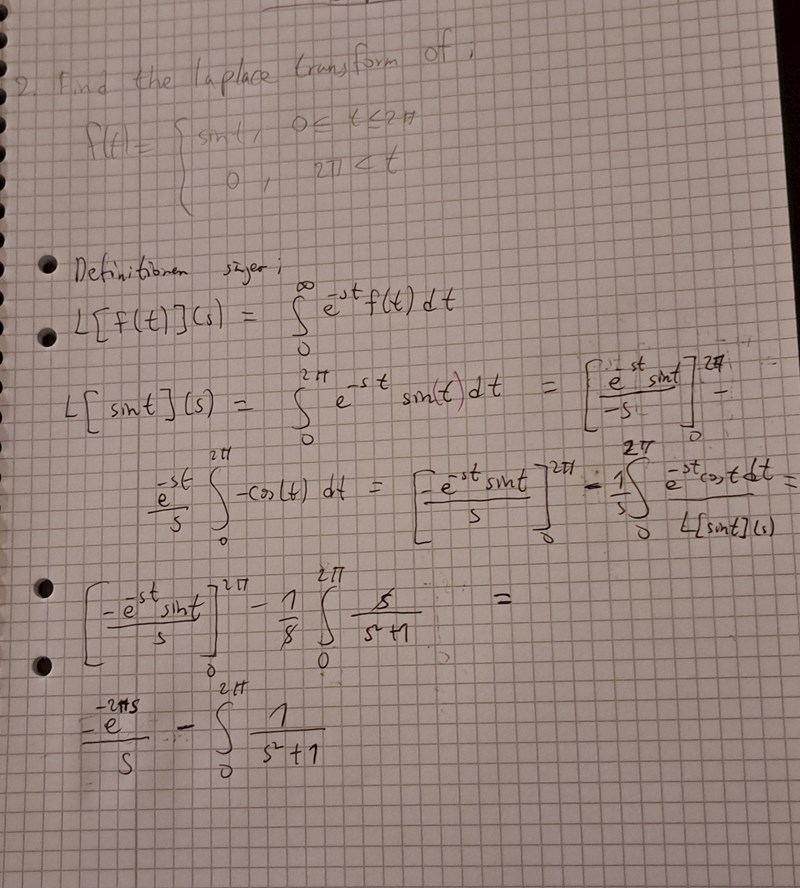 2. Find the laplace transform of:
f(t) = { sin t, 0 < t ≤ 2π
0, 2π < t
• Definitionen siger:
L[f(t)](s) = ∫₀^∞ e^{-st} f(t) dt
L[sint](s) = ∫₀^{2π} e^{-st} sin(t) dt = [e^{-st} sint / -s]₀^{2π} -
e^{-st}/s ∫₀^{2π} -cos(t) dt = [-e^{-st} sint / s]₀^{2π} - 1/s ∫₀^{2π} e^{-st} cos t dt =
L[sint](s)
[-e^{-st} sint / s]₀^{2π} - 1/s ∫₀^{2π} s/(s²+1) =
-e^{-2πs}/s - ∫₀^{2π} 1/(s²+1)